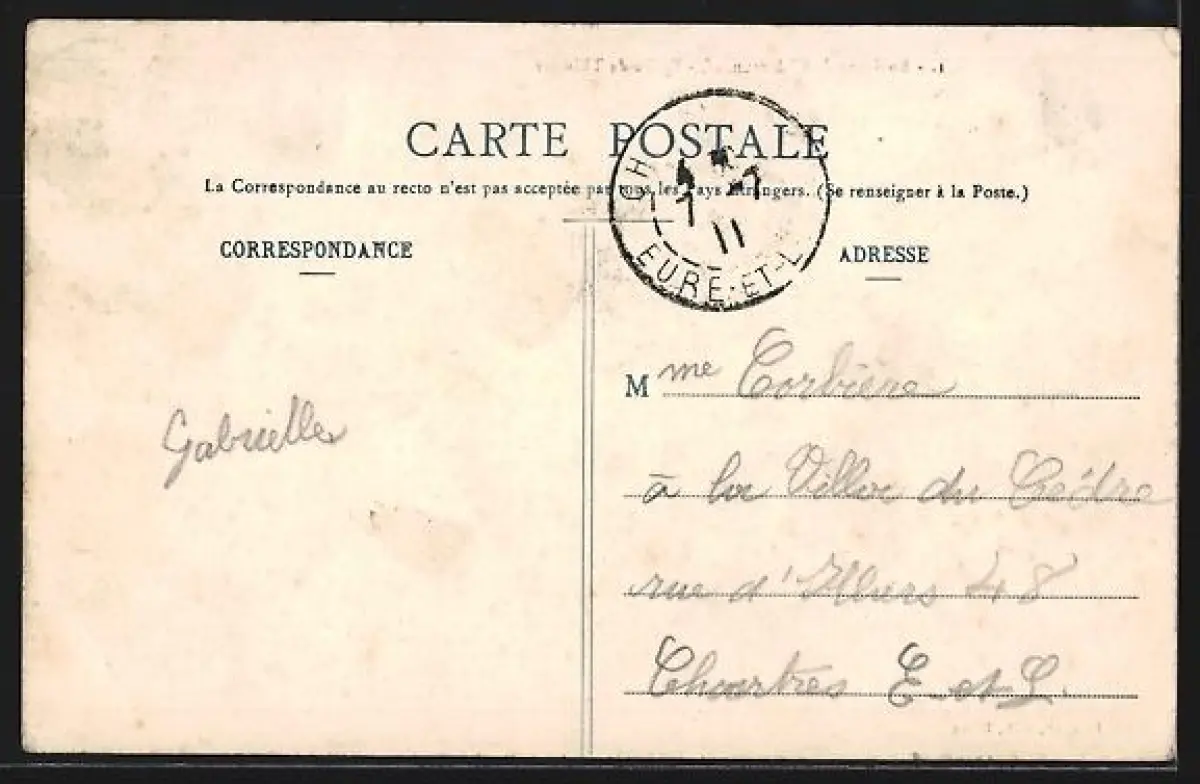 CARTE POSTALE
La Correspondance au recto n'est pas acceptée par tous les Pays Etrangers. (Se renseigner à la Poste.)
CH
7
7
11
EURE-ET-L
CORRESPONDANCE
ADRESSE
Gabrielle
Mme Corbière
à la Villa du Cèdre
rue d'Illiers 48
Chartres E et L.